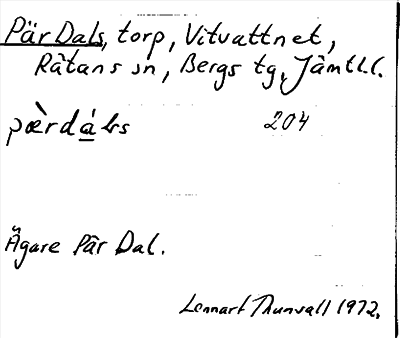 Pär Dals, torp, Vitvattnet,
Råtans sn, Bergs tg, Jämtl.l.
pæ̀rdáɫs 204
Ägare Pär Dal.
Lennart Thunvall 1972.